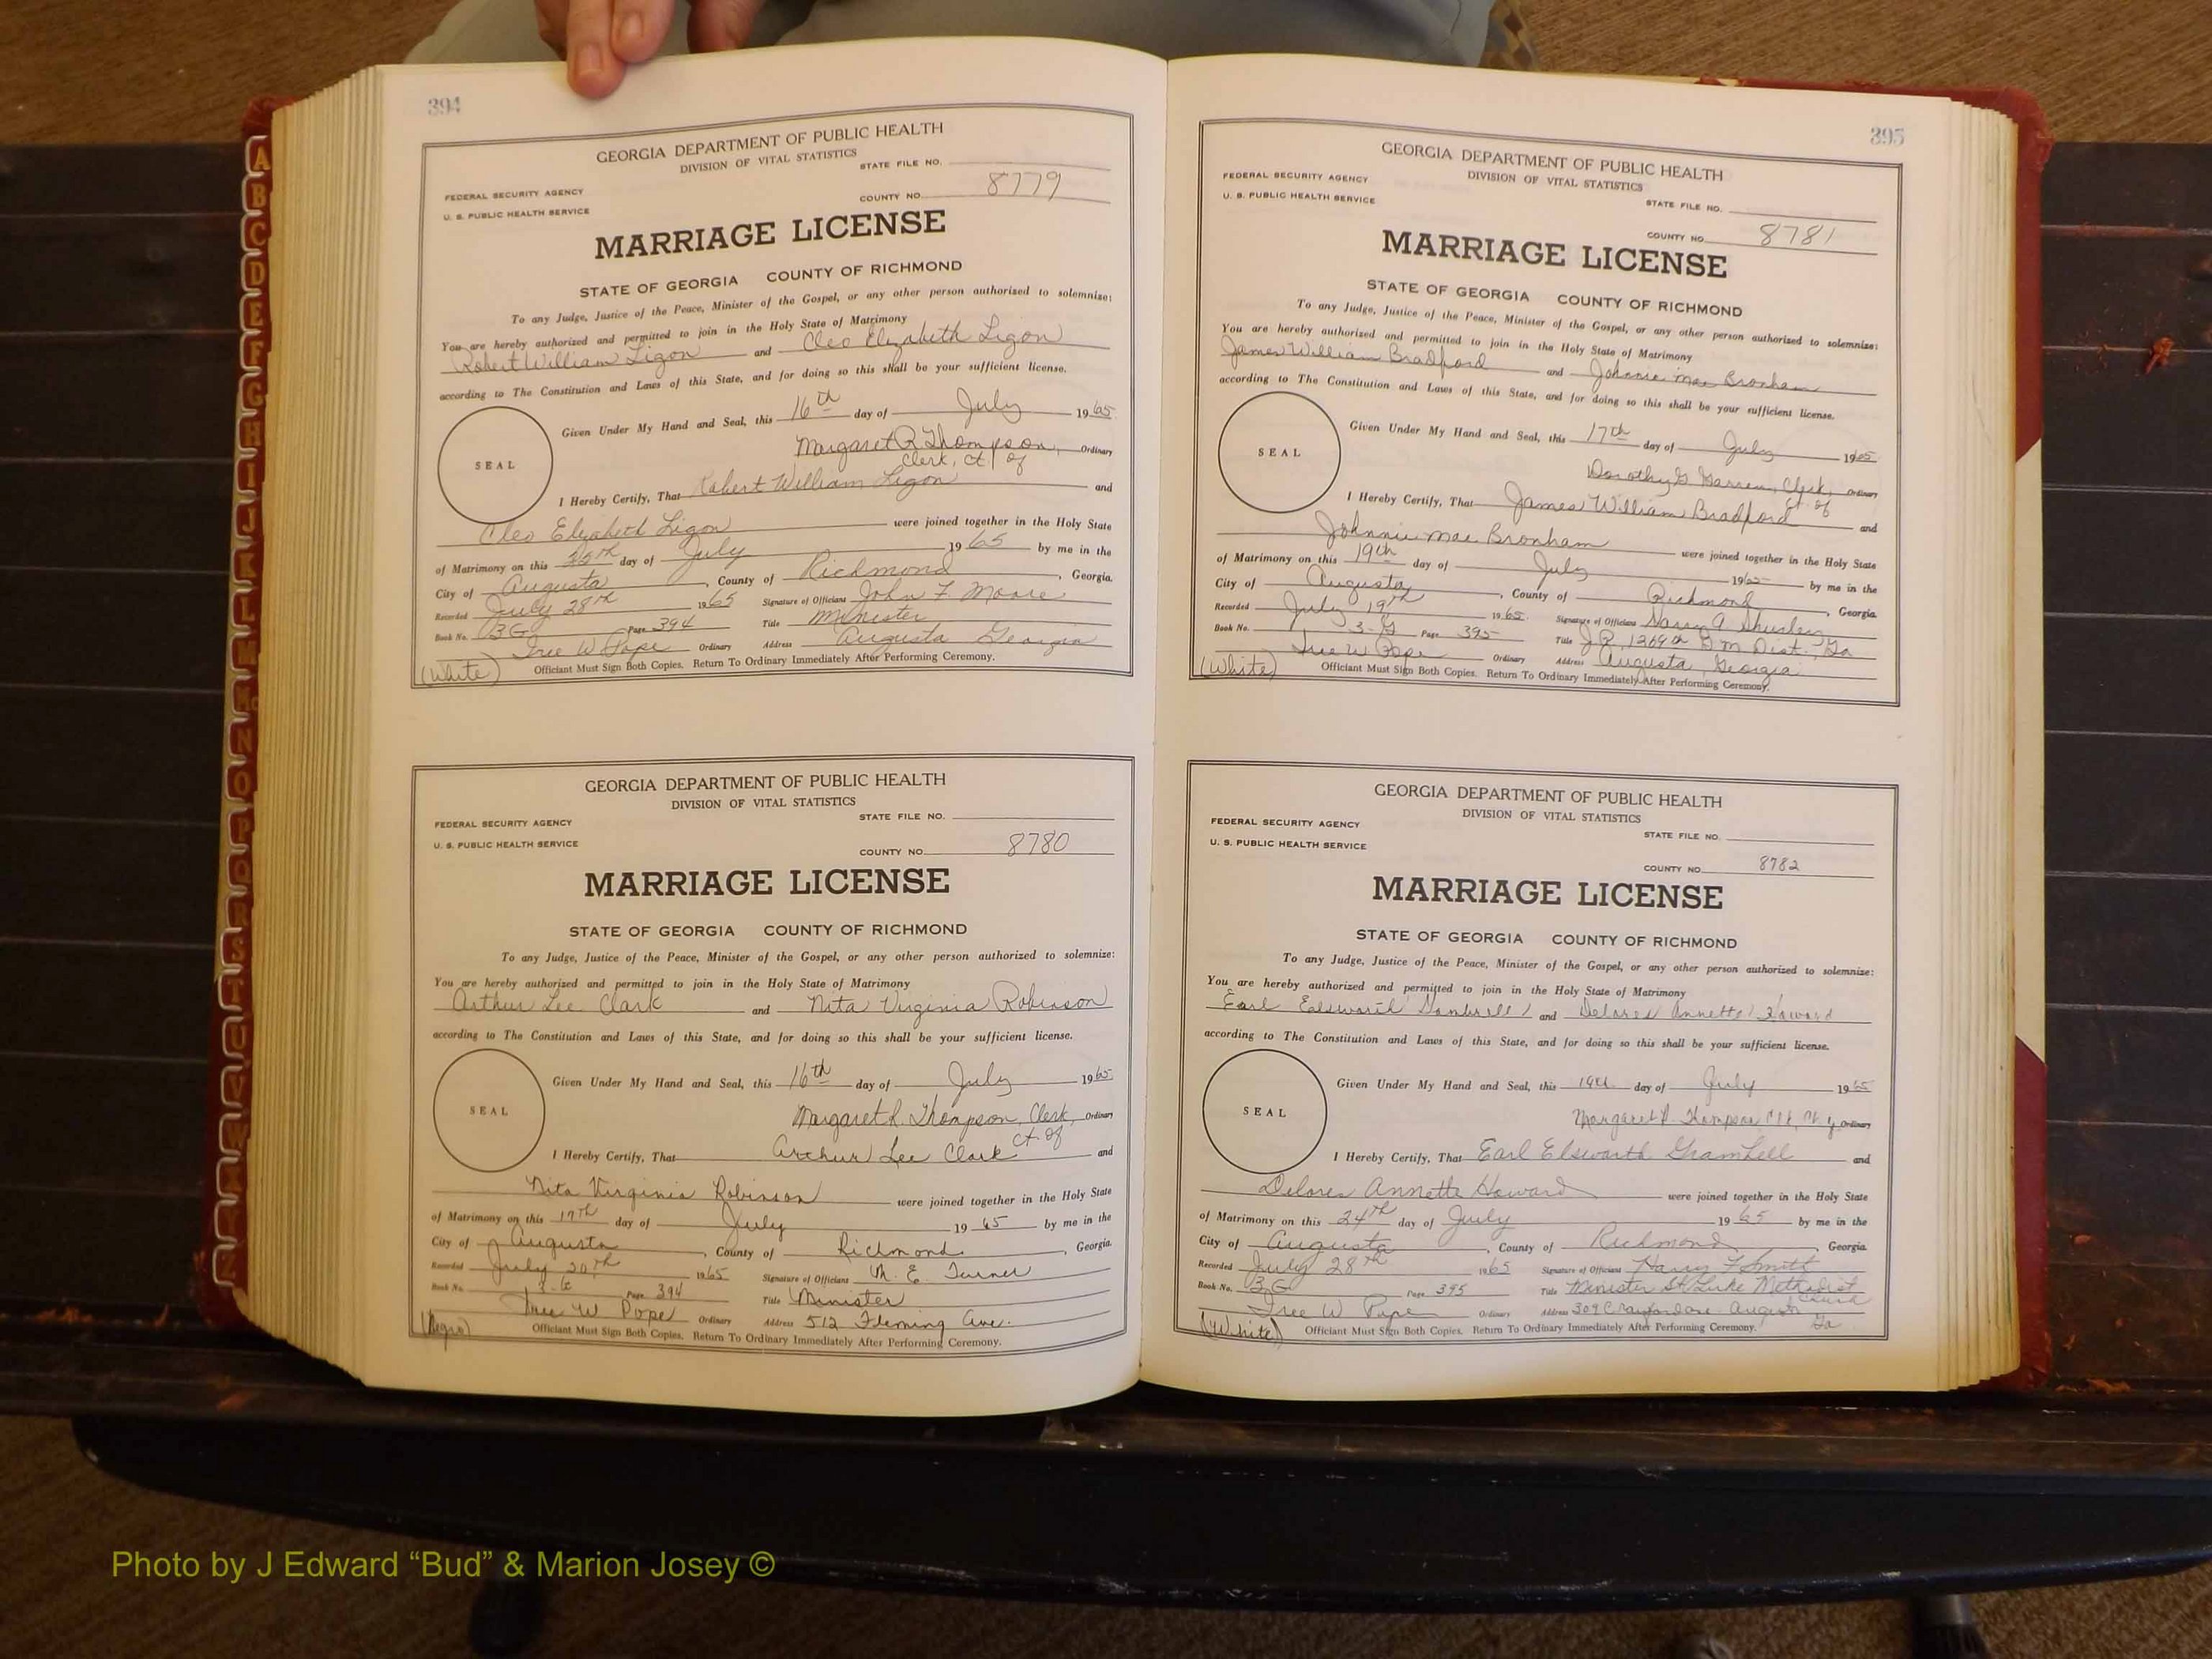 394
GEORGIA DEPARTMENT OF PUBLIC HEALTH
DIVISION OF VITAL STATISTICS
STATE FILE NO.
FEDERAL SECURITY AGENCY
U. S. PUBLIC HEALTH SERVICE
COUNTY NO. 8779
MARRIAGE LICENSE
STATE OF GEORGIA COUNTY OF RICHMOND
To any Judge, Justice of the Peace, Minister of the Gospel, or any other person authorized to solemnize:
You are hereby authorized and permitted to join in the Holy State of Matrimony
Robert William Ligon and Cleo Elizabeth Ligon
according to The Constitution and Laws of this State, and for doing so this shall be your sufficient license.
Given Under My Hand and Seal, this 16th day of July 1965
SEAL
Margaret R. Thompson, Ordinary
Clerk, Ct of
I Hereby Certify, That Robert William Ligon and
Cleo Elizabeth Ligon were joined together in the Holy State
of Matrimony on this 25th day of July 1965 by me in the
City of Augusta, County of Richmond, Georgia.
Recorded July 28th 1965 Signature of Officiant John F Moore
Book No. 3G Page 394 Title Minister
W Pope Ordinary Address Augusta Georgia
(White) Officiant Must Sign Both Copies. Return To Ordinary Immediately After Performing Ceremony.
GEORGIA DEPARTMENT OF PUBLIC HEALTH
DIVISION OF VITAL STATISTICS
STATE FILE NO.
FEDERAL SECURITY AGENCY
U. S. PUBLIC HEALTH SERVICE
COUNTY NO. 8780
MARRIAGE LICENSE
STATE OF GEORGIA COUNTY OF RICHMOND
To any Judge, Justice of the Peace, Minister of the Gospel, or any other person authorized to solemnize:
You are hereby authorized and permitted to join in the Holy State of Matrimony
Arthur Lee Clark and Nita Virginia Robinson
according to The Constitution and Laws of this State, and for doing so this shall be your sufficient license.
Given Under My Hand and Seal, this 16th day of July 1965
SEAL
Margaret R. Thompson, Clerk, Ordinary
Ct of
I Hereby Certify, That Arthur Lee Clark and
Nita Virginia Robinson were joined together in the Holy State
of Matrimony on this 17th day of July 1965 by me in the
City of Augusta, County of Richmond, Georgia.
Recorded July 20th 1965 Signature of Officiant E. Turner
Book No. Page 394 Title Minister
W Pope Ordinary Address 512 Fleming Ave.
(Negro) Officiant Must Sign Both Copies. Return To Ordinary Immediately After Performing Ceremony.
395
GEORGIA DEPARTMENT OF PUBLIC HEALTH
DIVISION OF VITAL STATISTICS
FEDERAL SECURITY AGENCY
U. S. PUBLIC HEALTH SERVICE
STATE FILE NO.
COUNTY NO. 8781
MARRIAGE LICENSE
STATE OF GEORGIA COUNTY OF RICHMOND
To any Judge, Justice of the Peace, Minister of the Gospel, or any other person authorized to solemnize:
You are hereby authorized and permitted to join in the Holy State of Matrimony
James William Bradford and Johnnie Mae Bronham
according to The Constitution and Laws of this State, and for doing so this shall be your sufficient license.
Given Under My Hand and Seal, this 17th day of July 1965
SEAL
Dorothy G. Clerk, Ordinary
Ct. of
I Hereby Certify, That James William Bradford and
Johnnie Mae Bronham were joined together in the Holy State
of Matrimony on this 19th day of July 1965 by me in the
City of Augusta, County of Richmond, Georgia.
Recorded July 19th 1965 Signature of Officiant
Book No. 3-G Page 395 Title J.P. 1269th G.M. Dist. Ga
W Pope Ordinary Address Augusta, Georgia
(White) Officiant Must Sign Both Copies. Return To Ordinary Immediately After Performing Ceremony.
GEORGIA DEPARTMENT OF PUBLIC HEALTH
DIVISION OF VITAL STATISTICS
FEDERAL SECURITY AGENCY
U. S. PUBLIC HEALTH SERVICE
STATE FILE NO.
COUNTY NO. 8782
MARRIAGE LICENSE
STATE OF GEORGIA COUNTY OF RICHMOND
To any Judge, Justice of the Peace, Minister of the Gospel, or any other person authorized to solemnize:
You are hereby authorized and permitted to join in the Holy State of Matrimony
Earl Elsworth and Delores Annette Howard
according to The Constitution and Laws of this State, and for doing so this shall be your sufficient license.
Given Under My Hand and Seal, this 19th day of July 1965
SEAL
Margaret R. Thompson, Clk, Ct. of Ordinary
I Hereby Certify, That Earl Elsworth and
Delores Annette Howard were joined together in the Holy State
of Matrimony on this 24th day of July 1965 by me in the
City of Augusta, County of Richmond, Georgia
Recorded July 28th 1965 Signature of Officiant Harry F Smith
Book No. 3G Page 395 Title Minister St. Luke Methodist Church
W Pope Ordinary Address 309 Crawford Ave. Augusta Ga
(White) Officiant Must Sign Both Copies. Return To Ordinary Immediately After Performing Ceremony.
A
B
C
D
E
F
G
H
I
J
K
L
M
Mc
N
O
P
Q
R
S
T
U
V
W
Photo by J Edward “Bud” & Marion Josey ©